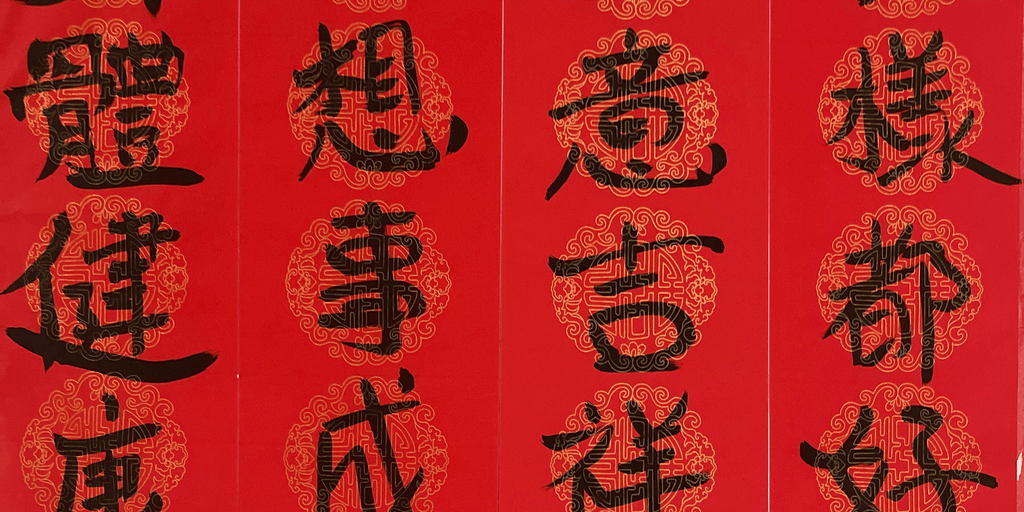 樣都好
意吉祥
想事成
體健康